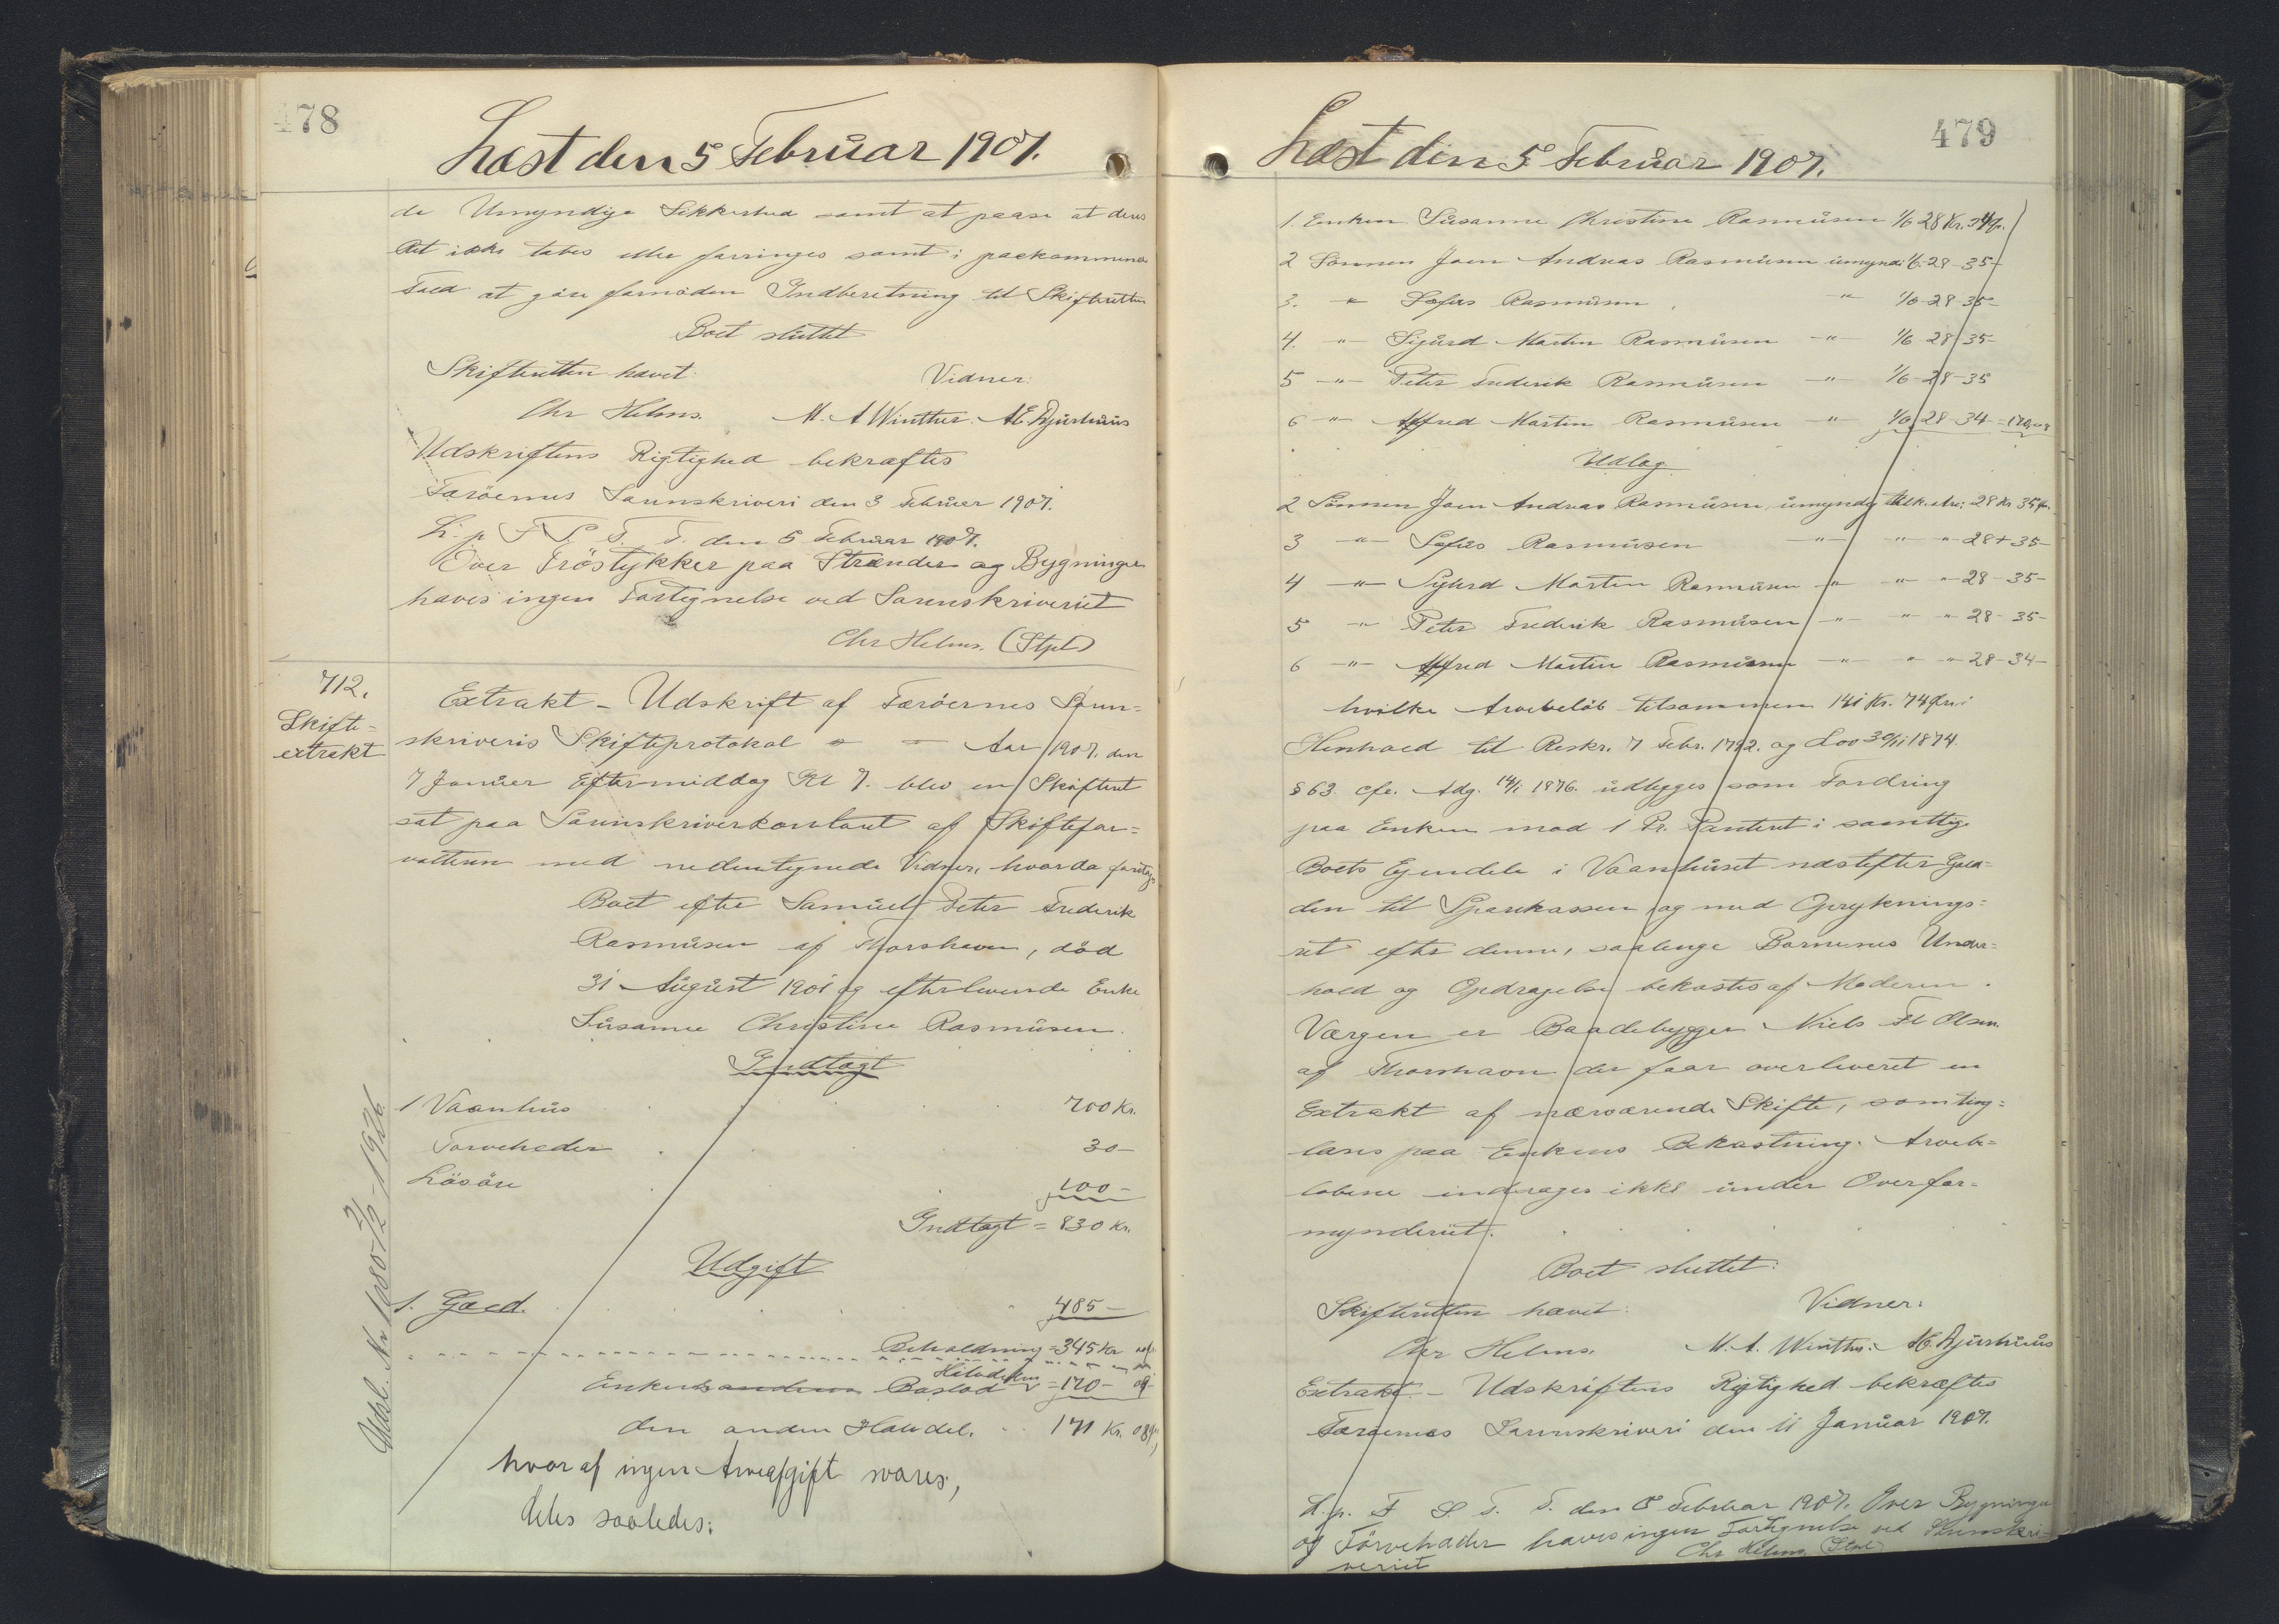 478
Læst den 5 Februar 1907.
de Umyndige Sikkerhed samt at paase at deres
Ret ikke tabes eller forringes samt i paakommende
Fald at göre fornöden Indberetning til Skifteretten
Boet sluttet
Skifteretten hævet: Vidner:
Chr Helms. M. A Winther. A.C. Djurhuus
Udskriftens Rigtighed bekræftes
Færöernes Sorenskriveri den 3 Februar 1907.
L. p F S. T. T. den 5 Februar 1907.
Over Tröstykker paa Strander og Bygninger
haves ingen Fortegnelse ved Sorenskriveriet
Chr Helms. (Stpl)
712.
Skifte-
extrakt
Extrakt - Udskrift af Færöernes Soren-
skriveris Skifteprotokol - - Aar 1907. den
7 Januar Eftermiddag Kl 7. blev en Skifteret
sat paa Sorenskriverkontoret af Skiftefor-
valteren med nedentegnede Vidner, hvorda foretoges
Boet efter Samuel Peter Frederik
Rasmussen af Thorshavn, död
31 August 1901 og efterlevende Enke
Susanne Christine Rasmussen.
Indtægt
1 Vaanhus 700 Kr.
Torveheder 30 -
Lösöre 100 -
Indtægt = 830 Kr.
Udgift
1. Gæld. 485 -
Beholdning = 345 Kr
Enkens Boslod Hovedlod = 170 -
den anden Halvdel. 171 Kr. 08
hvoraf ingen Arveafgift svares,
deles saaledes:
Udsl. Nr 1080 2/2 - 1926
479
Læst den 5 Februar 1907.
1. Enken Susanne Christine Rasmussen 1/6 28 Kr. 34
2 Sönnen Joen Andreas Rasmussen umyndi 1/6 - 28 - 35 -
3. " Sofus Rasmussen " 1/6 - 28 - 35 -
4. " Sigurd Martin Rasmussen " 1/6 - 28 - 35 -
5 " Peter Frederik Rasmussen " 1/6 - 28 - 35
6 " Alfred Martin Rasmussen " 1/6 28 - 34 = 170,08
Udlæg
2 Sönnen Joen Andreas Rasmussen, umyndig tilk. Arv: 28 Kr 35
3 " Sofus Rasmussen " " " 28 - 35 -
4 " Sigurd Martin Rasmussen " " " 28 - 35 -
5 " Peter Frederik Rasmussen " " " 28 - 35 -
6 " Alfred Martin Rasmussen " " " 28 - 34 -
hvilke Arvebelöb tilsammen 141 Kr. 74 Öre i
Henhold til Reskr. 7 Febr. 1772. og Lov 30/11 1874.
§ 63. cfr. Adg. 14/1 1876. udlægges som Fordring
paa Enken mod 1 Pr. Panteret i samtlige
Boets Ejendele i Vaanhuset næstefter Gæl-
den til Sparekassen og med Oprykknings-
ret efter denne, saalænge Börnenes Under-
hold og Opdragelse bekostes af Moderen.
Værgen er Baadebygger Niels Fl Olsen
af Thorshavn der faar overleveret en
Extrakt af nærværende Skifte, somting-
læses paa Enkens Bekostning. Arvebe-
löbene inddrages ikke under Overfor-
mynderiet.
Boet sluttet:
Skifteretten hævet: Vidner:
Chr Helms. M. A. Winther. A.C. Djurhuus
Extrakt - Udskriftens Rigtighed bekræftes
Færöernes Sorenskriveri den 11 Januar 1907.
L. p. F S. T. T. den 5 Februar 1907. Over Bygninger
og Törveheder haves ingen Fortegnelse ved Sorenskri-
veriet Chr Helms (Stpl)